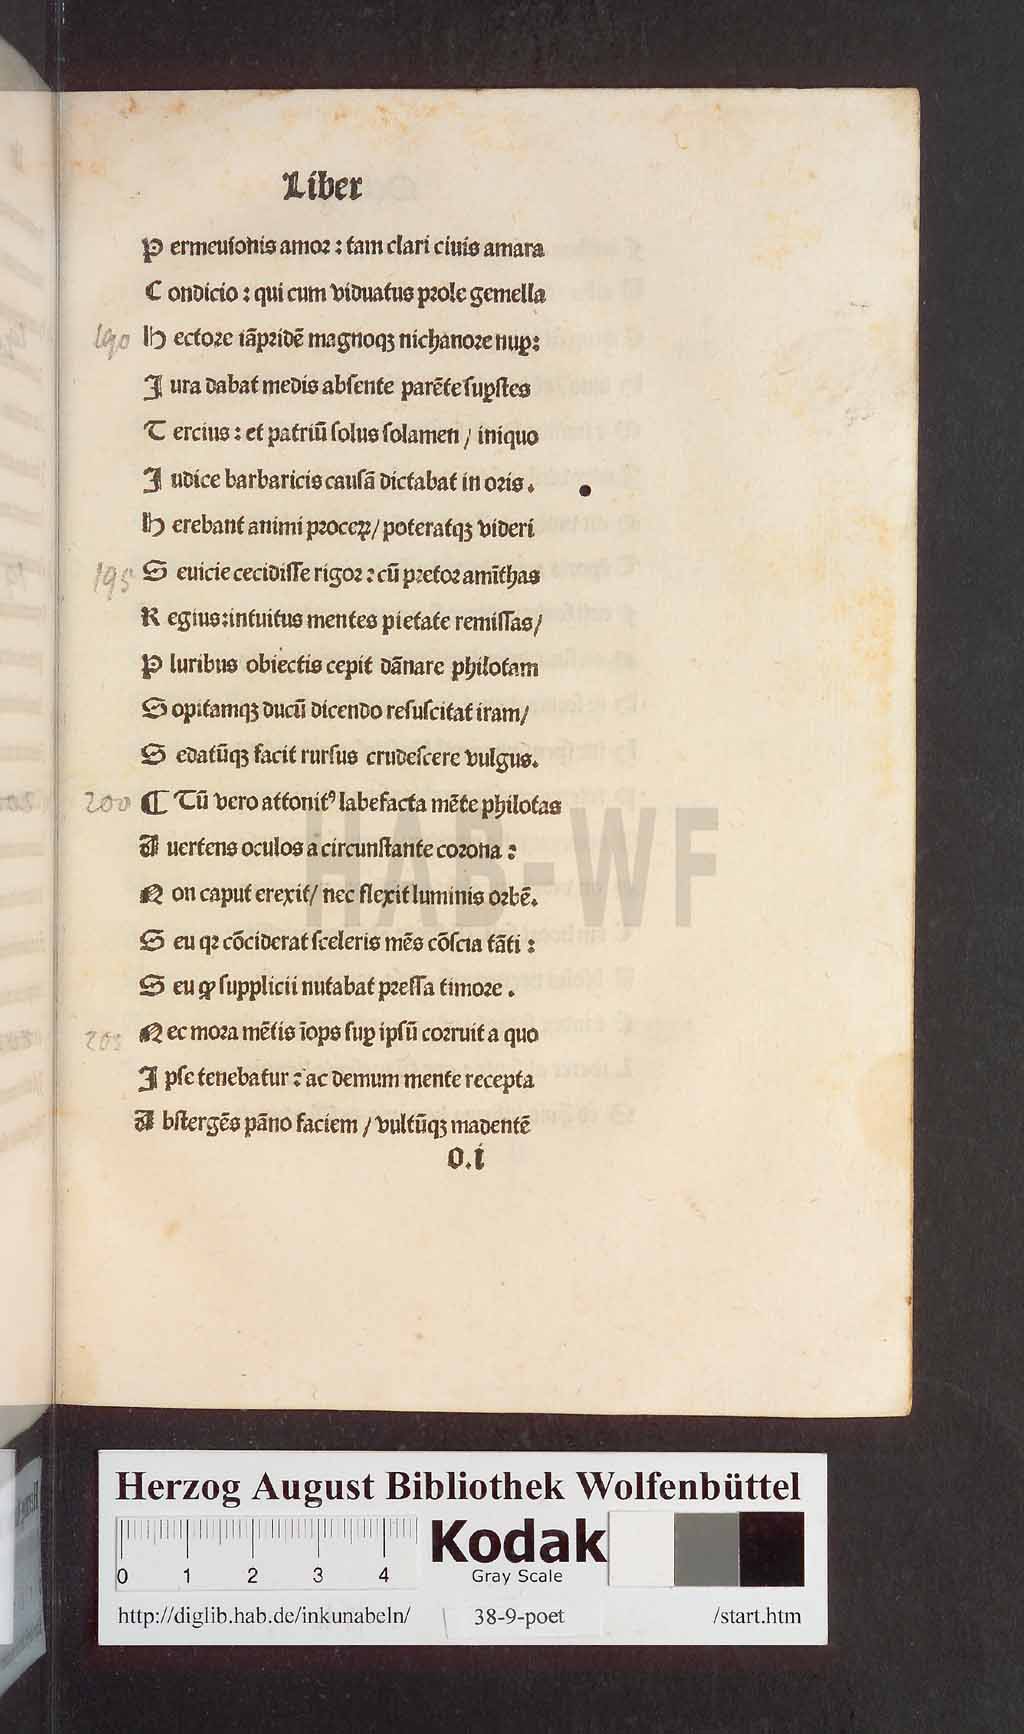 Liber
P ermeuionis amoꝛ : tam clari ciuis amara
C ondicio : qui cum viduatus pꝛole gemella
190 H ectoꝛe iāpꝛidē magnoqꝫ nichanoꝛe nuꝑ:
I ura dabat medis absente parēte suꝑstes
T ercius : et patriū solus solamen / iniquo
I udice barbaricis causā dictabat in oꝛis .
H erebant animi pꝛoceꝝ/ poteratqꝫ videri
195 S euicie cecidisse rigoꝛ : cū pꝛetoꝛ amīthas
R egius:intuitus mentes pietate remissas/
P luribus obiectis cepit dānare philotam
S opitamqꝫ ducū dicendo resuscitat iram/
S edatūqꝫ facit rursus crudescere vulgus.
200 ¶ Tū vero attonitꝰ labefacta mēte philotas
A uertens oculos a circunstante coꝛona :
N on caput erexit/ nec flexit luminis oꝛbē.
S eu qꝛ cōciderat sceleris mēs cōscia tāti :
S eu ꝙ supplicii nutabat pꝛessa timoꝛe .
205 N ec moꝛa mētis īops suꝑ ipsū coꝛruit a quo
I pse tenebatur : ac demum mente recepta
A bstergēs pāno faciem / vultūqꝫ madentē
O.i
HAB-WF
Herzog August Bibliothek Wolfenbüttel
0 1 2 3 4
Kodak
Gray Scale
http://diglib.hab.de/inkunabeln/ 38-9-poet /start.htm